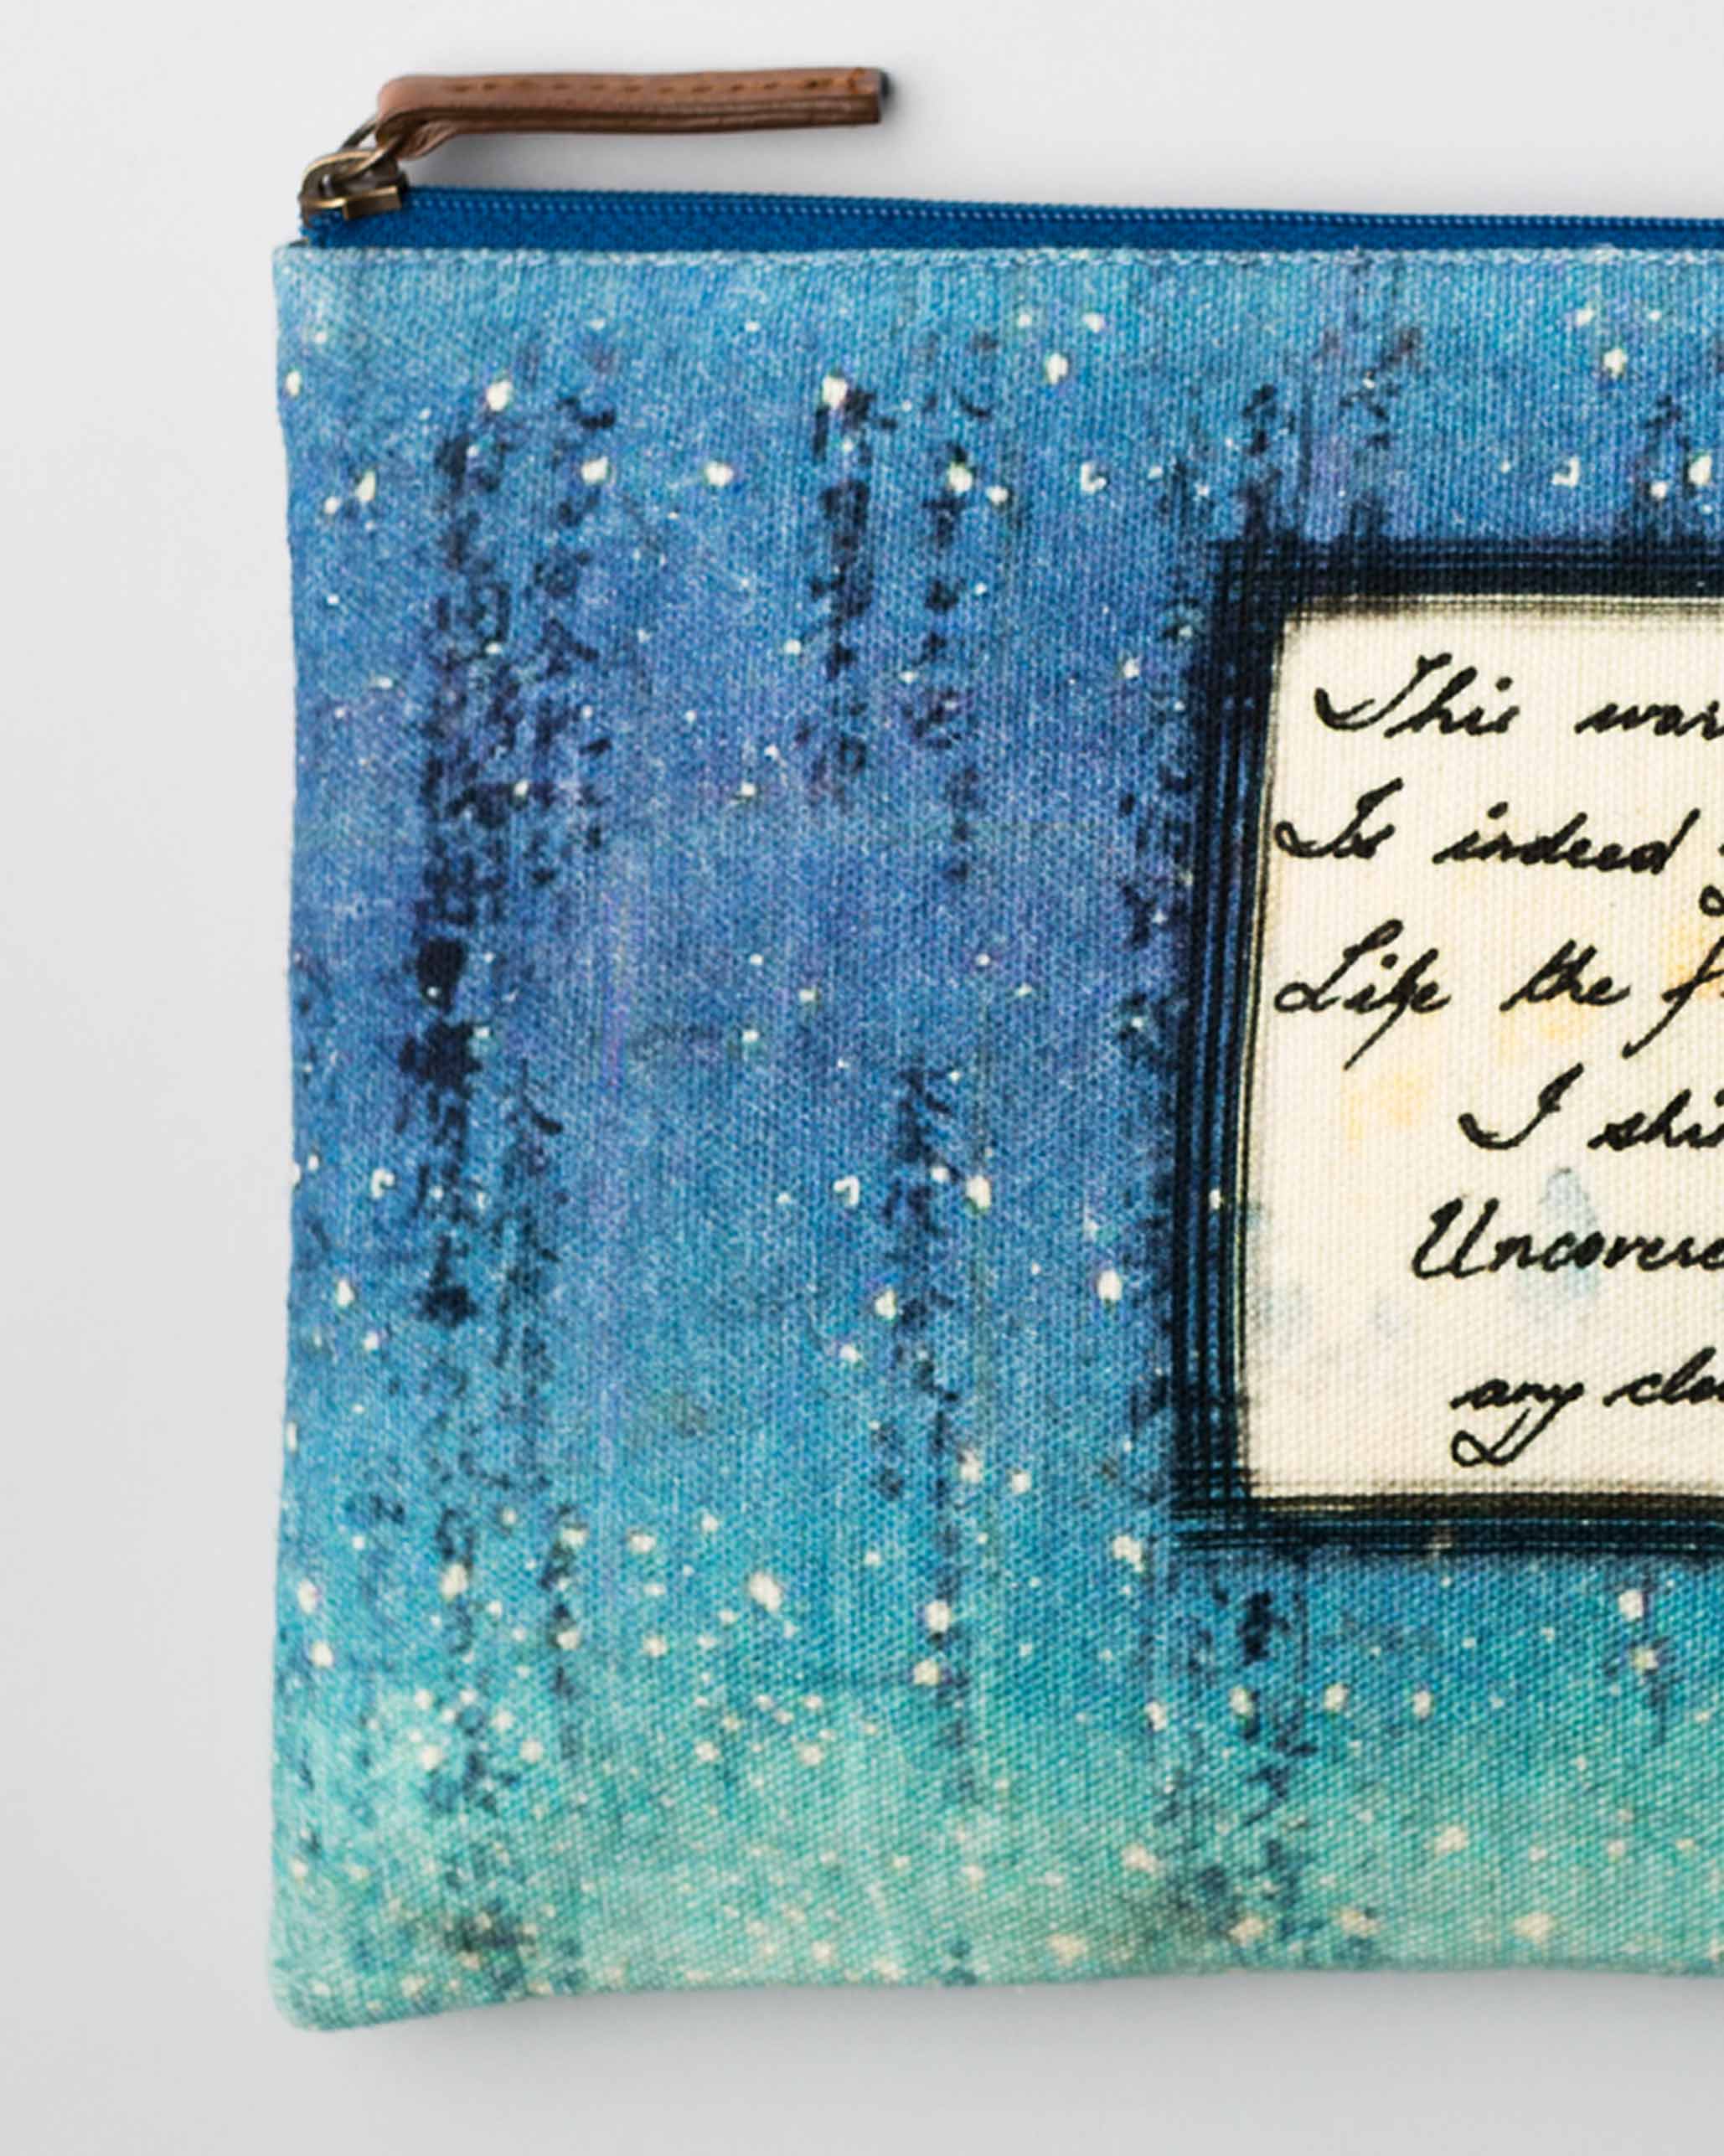 This wor
Is indeed
Like the f
I shi
Uncovere
any clo